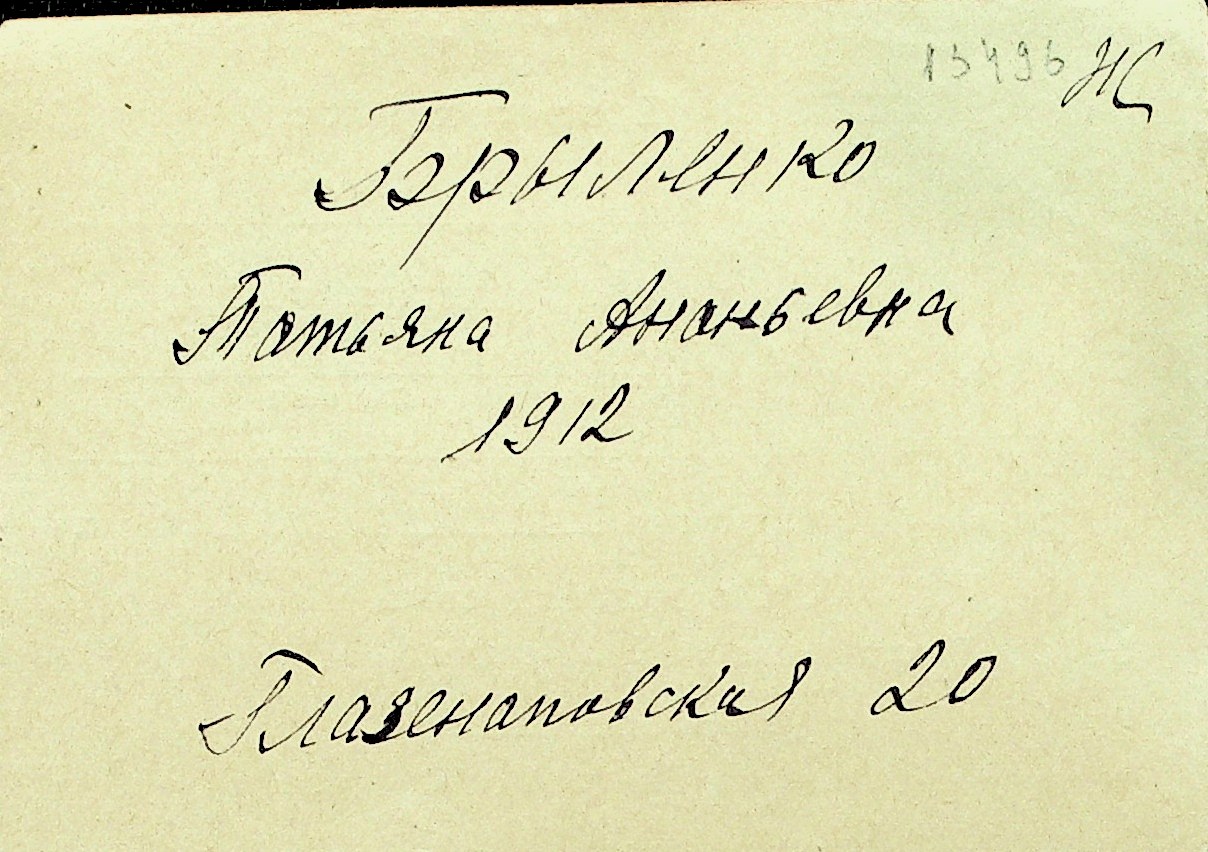 13496 НС
Брыленко
Татьяна Ананьевна
1912
Глазенаповская 20